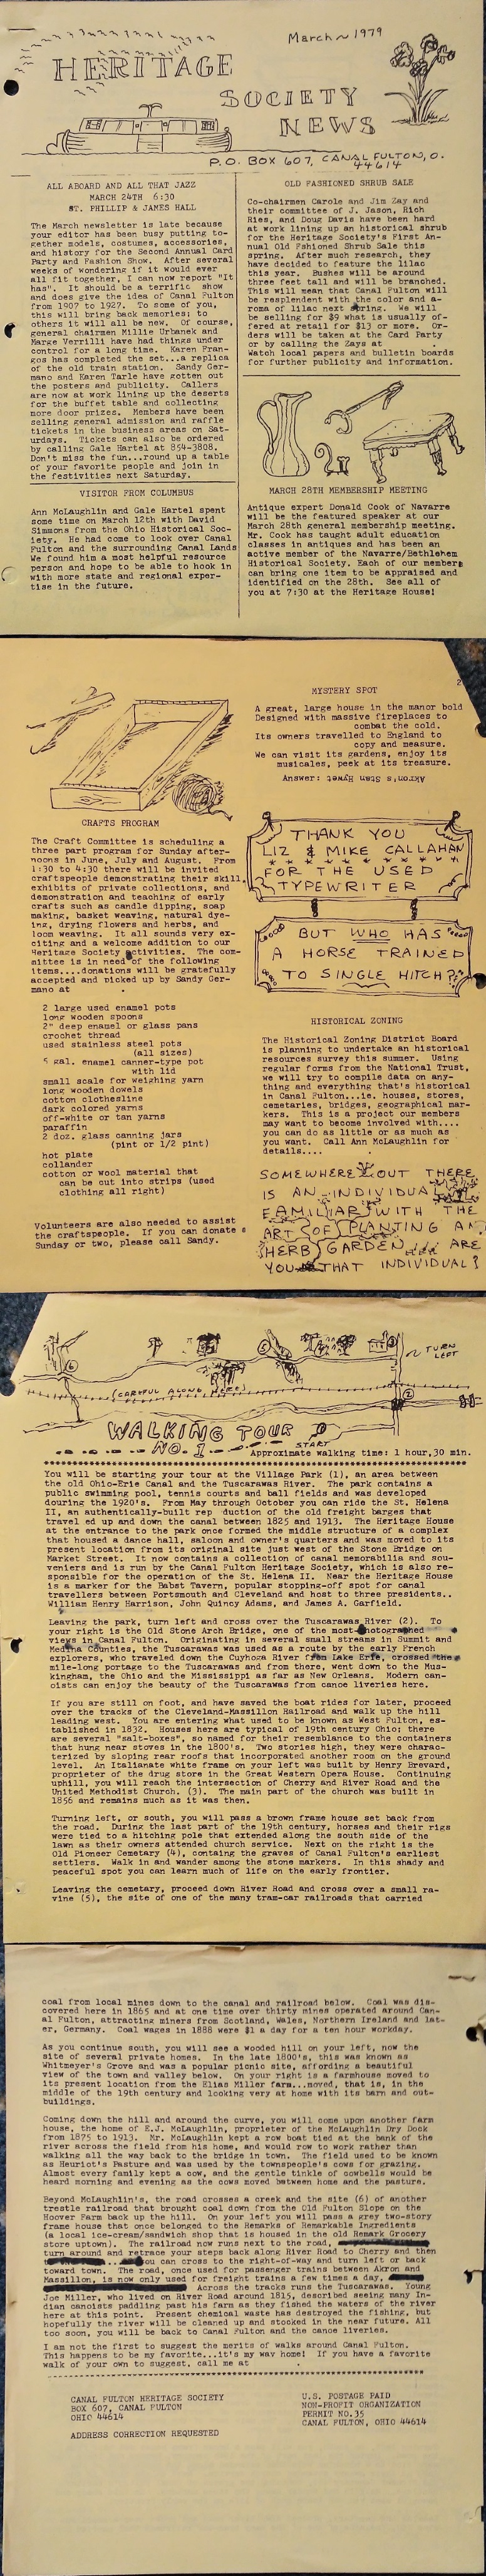 March ~ 1979
HERITAGE
SOCIETY
NEWS
P.O. BOX 607, CANAL FULTON, O.
44614
ALL ABOARD AND ALL THAT JAZZ
MARCH 24TH 6:30
ST. PHILLIP & JAMES HALL
The March newsletter is late because
your editor has been busy putting to-
gether models, costumes, accessories,
and history for the Second Annual Card
Party and Fashion Show. After several
weeks of wondering if it would ever
all fit together, I can now report "It
has". It should be a terrific show
and does give the idea of Canal Fulton
from 1907 to 1927. To some of you,
this will bring back memories; to
others it will all be new. Of course,
general chairmen Millie Urbanek and
Marge Verrilli have had things under
control for a long time. Karen Fran-
gos has completed the set...a replica
of the old train station. Sandy Ger-
mano and Karen Tarle have gotten out
the posters and publicity. Callers
are now at work lining up the deserts
for the buffet table and collecting
more door prizes. Members have been
selling general admission and raffle
tickets in the business areas on Sat-
urdays. Tickets can also be ordered
by calling Gale Hartel at 854-3808.
Don't miss the fun...round up a table
of your favorite people and join in
the festivities next Saturday.
VISITOR FROM COLUMBUS
Ann McLaughlin and Gale Hartel spent
some time on March 12th with David
Simmons from the Ohio Historical Soc-
iety. He had come to look over Canal
Fulton and the surrounding Canal Lands
We found him a most helpful resource
person and hope to be able to hook in
with more state and regional exper-
tise in the future.
OLD FASHIONED SHRUB SALE
Co-chairmen Carole and Jim Zay and
their committee of J. Jason, Rich
Ries, and Doug Davis have been hard
at work lining up an historical shrub
for the Heritage Society's First An-
nual Old Fashioned Shrub Sale this
spring. After much research, they
have decided to feature the lilac
this year. Bushes will be around
three feet tall and will be branched.
This will mean that Canal Fulton will
be resplendent with the color and a-
roma of lilac next spring. We will
be selling for $9 what is usually of-
fered at retail for $13 or more. Or-
ders will be taken at the Card Party
or by calling the Zays at
Watch local papers and bulletin boards
for further publicity and information.
MARCH 28TH MEMBERSHIP MEETING
Antique expert Donald Cook of Navarre
will be the featured speaker at our
March 28th general membership meeting.
Mr. Cook has taught adult education
classes in antiques and has been an
active member of the Navarre/Bethlehem
Historical Society. Each of our members
can bring one item to be appraised and
identified on the 28th. See all of
you at 7:30 at the Heritage House!
2
CRAFTS PROGRAM
The Craft Committee is scheduling a
three part program for Sunday after-
noons in June, July and August. From
1:30 to 4:30 there will be invited
craftspeople demonstrating their skill,
exhibits of private collections, and
demonstration and teaching of early
crafts such as candle dipping, soap
making, basket weaving, natural dye-
ing, drying flowers and herbs, and
loom weaving. It all sounds very ex-
citing and a welcome addition to our
Heritage Society activities. The com-
mittee is in need of the following
items....donations will be gratefully
accepted and picked up by Sandy Ger-
mano at .
2 large used enamel pots
long wooden spoons
2" deep enamel or glass pans
crochet thread
used stainless steel pots
(all sizes)
5 gal. enamel canner-type pot
with lid
small scale for weighing yarn
long wooden dowels
cotton clothesline
dark colored yarns
off-white or tan yarns
paraffin
2 doz. glass canning jars
(pint or 1/2 pint)
hot plate
collander
cotton or wool material that
can be cut into strips (used
clothing all right)
Volunteers are also needed to assist
the craftspeople. If you can donate a
Sunday or two, please call Sandy.
MYSTERY SPOT
A great, large house in the manor bold
Designed with massive fireplaces to
combat the cold.
Its owners travelled to England to
copy and measure.
We can visit its gardens, enjoy its
musicales, peek at its treasure.
Answer: Akron's Stan Hywet
THANK YOU
LIZ & MIKE CALLAHAN
FOR THE USED
TYPEWRITER
BUT WHO HAS
A HORSE TRAINED
TO SINGLE HITCH??
HISTORICAL ZONING
The Historical Zoning District Board
is planning to undertake an historical
resources survey this summer. Using
regular forms from the National Trust,
we will try to compile data on any-
thing and everything that's historical
in Canal Fulton...ie. houses, stores,
cemetaries, bridges, geographical mar-
kers. This is a project our members
may want to become involved with....
you can do as little or as much as
you want. Call Ann McLaughlin for
details.... .
SOMEWHERE OUT THERE
IS AN INDIVIDUAL
FAMILIAR WITH THE
ART OF PLANTING AN
HERB GARDEN ARE
YOU THAT INDIVIDUAL?
TURN
LEFT
(CAREFUL ALONG HERE)
WALKING TOUR
NO. 1
START
Approximate walking time: 1 hour,30 min.
You will be starting your tour at the Village Park (1), an area between
the old Ohio-Erie Canal and the Tuscarawas River. The park contains a
public swimming pool, tennis courts and ball fields and was developed
douring the 1920's. From May through October you can ride the St. Helena
II, an authentically-built rep duction of the old freight barges that
travel ed up and down the canal between 1825 and 1913. The Heritage House
at the entrance to the park once formed the middle structure of a complex
that housed a dance hall, saloon and owner's quarters and was moved to its
present location from its original site just west of the Stone Bridge on
Market Street. It now contains a collection of canal memorabilia and sou-
veniers and is run by the Canal Fulton Heritage Society, which is also re-
sponsible for the operation of the St. Helena II. Near the Heritage House
is a marker for the Babst Tavern, popular stopping-off spot for canal
travellers between Portsmouth and Cleveland and host to three presidents..
William Henry Harrison, John Quincy Adams, and James A. Garfield.
Leaving the park, turn left and cross over the Tuscarawas River (2). To
your right is the Old Stone Arch Bridge, one of the most photographed
views in Canal Fulton. Originating in several small streams in Summit and
Medina Counties, the Tuscarawas was used as a route by the early French
explorers, who traveled down the Cuyhoga River from Lake Erie, crossed the
mile-long portage to the Tuscarawas and from there, went down to the Mus-
kingham, the Ohio and the Mississippi as far as New Orleans. Modern can-
oists can enjoy the beauty of the Tuscarawas from canoe liveries here.
If you are still on foot, and have saved the boat rides for later, proceed
over the tracks of the Cleveland-Massilon Railroad and walk up the hill
leading west. You are entering what used to be known as West Fulton, es-
tablished in 1832. Houses here are typical of 19th century Ohio; there
are several "salt-boxes", so named for their resemblance to the containers
that hung near stoves in the 1800's. Two stories high, they were charac-
terized by sloping rear roofs that incorporated another room on the ground
level. An Italianate white frame on your left was built by Henry Brevard,
proprietor of the drug store in the Great Western Opera House. Continuing
uphill, you will reach the intersection of Cherry and River Road and the
United Methodist Church. (3). The main part of the church was built in
1856 and remains much as it was then.
Turning left, or south, you will pass a brown frame house set back from
the road. During the last part of the 19th century, horses and their rigs
were tied to a hitching pole that extended along the south side of the
lawn as their owners attended church service. Next on the right is the
Old Pioneer Cemetary (4), containg the graves of Canal Fulton's earliest
settlers. Walk in and wander among the stone markers. In this shady and
peaceful spot you can learn much of life on the early frontier.
Leaving the cemetary, proceed down River Road and cross over a small ra-
vine (5), the site of one of the many tram-car railroads that carried
coal from local mines down to the canal and railroad below. Coal was dis-
covered here in 1865 and at one time over thirty mines operated around Can-
al Fulton, attracting miners from Scotland, Wales, Northern Ireland and lat-
er, Germany. Coal wages in 1888 were $1 a day for a ten hour workday.
As you continue south, you will see a wooded hill on your left, now the
site of several private homes. In the late 1800's, this was known as
Whitmeyer's Grove and was a popular picnic site, affording a beautiful
view of the town and valley below. On your right is a farmhouse moved to
its present location from the Elias Miller farm...moved, that is, in the
middle of the 19th century and looking very at home with its barn and out-
buildings.
Coming down the hill and around the curve, you will come upon another farm
house, the home of E.J. McLaughlin, proprietor of the McLaughlin Dry Dock
from 1875 to 1913. Mr. McLaughlin kept a row boat tied at the bank of the
river across the field from his home, and would row to work rather than
walking all the way back to the bridge in town. The field used to be known
as Heurict's Pasture and was used by the townspeople's cows for grazing.
Almost every family kept a cow, and the gentle tinkle of cowbells would be
heard morning and evening as the cows moved between home and the pasture.
Beyond McLaughlin's, the road crosses a creek and the site (6) of another
trestle railroad that brought coal down from the Old Fulton Slope on the
Hoover Farm back up the hill. On your left you will pass a grey two-story
frame house that once belonged to the Remarks of Remarkable Ingredients
(a local ice-cream/sandwich shop that is housed in the old Remark Grocery
store uptown). The railroad now runs next to the road,
turn around and retrace your steps back along River Road to Cherry and then
you can cross to the right-of-way and turn left or back
toward town. The road, once used for passenger trains between Akron and
Massillon, is now only used for freight trains a few times a day,
Across the tracks runs the Tuscarawas. Young
Joe Miller, who lived on River Road around 1815, described seeing many In-
dian canoeists paddling past his farm as they fished the waters of the river
here at this point. Present chemical waste has destroyed the fishing, but
hopefully the river will be cleaned up and stocked in the near future. All
too soon, you will be back to Canal Fulton and the canoe liveries.
I am not the first to suggest the merits of walks around Canal Fulton.
This happens to be my favorite...it's my way home! If you have a favorite
walk of your own to suggest, call me at .
CANAL FULTON HERITAGE SOCIETY
BOX 607, CANAL FULTON
OHIO 44614
ADDRESS CORRECTION REQUESTED
U.S. POSTAGE PAID
NON-PROFIT ORGANIZATION
PERMIT NO.35
CANAL FULTON, OHIO 44614